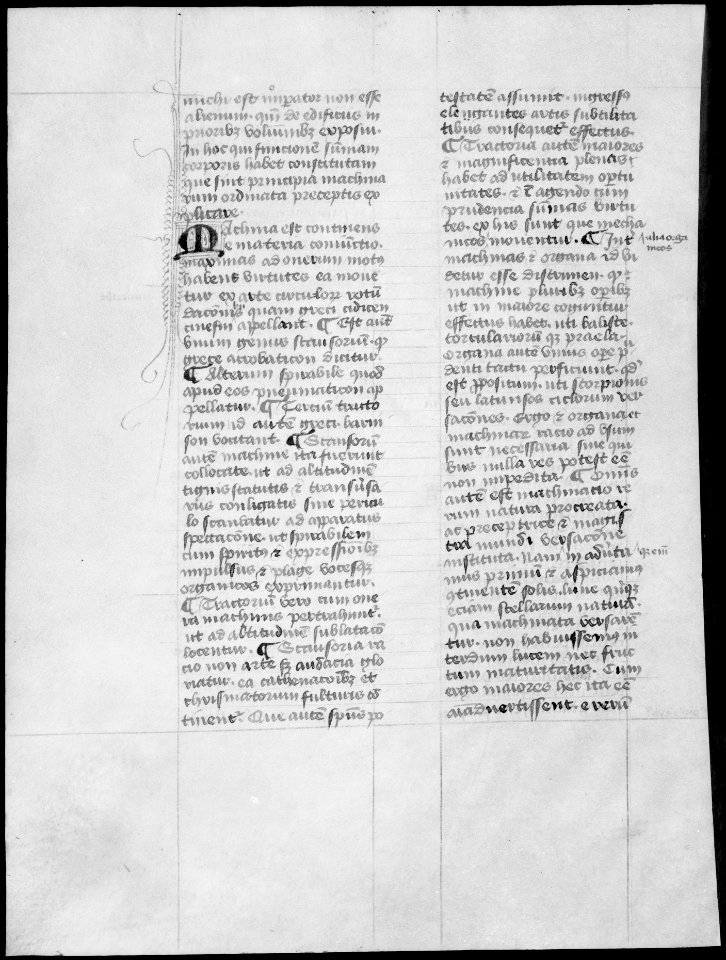 michi est imperator non esse
alienum · quin de edificiis in
prioribus voluminibus exposui ·
In hoc qui funcionem summam
corporis habet constitutam
que sint principia machina
rum ordinata preceptis ex
plicare ·
Machina est continens
e materia coniunctio ·
maximas ad onerum motus
habens virtutes ea moue
tur ex arte circulorum rotun
quam greci
apellant · ¶ Est autem
vnum genus scansorium · quod
grece acrobaticon dicitur ·
¶ Alterum spirabile quod
apud eos pneumaticon ap
pellatur · ¶ Tercium tracto
rium id autem greci
vocitant · ¶ Scansorium
autem machine ita fuerunt
collocate ut ad altitudinem
tignis statutis et transuersa
riis conligatis sine pericu
lo scandatur ad aparatus
spectacionem · ut spirabilem
cum spiritus et expressionibus
impulsus et plage vocesque
organicos exprimantur ·
¶ Tractorium vero cum one
ra machinis pertrahuntur ·
ut ad altitudinem sublata con
locentur · ¶ Scansoria ra
cio non arte sed audacia glo
riatur · ea cathenacionibus et
fulturis con
tinentur · Que autem spiritus po
testatem assumit · ingressus
elegantes artis subtilita
tibus consequetur effectus ·
¶ Tractoria autem maiores
et magnificentia plenas
habet ad utilitatem oportu
nitates · et in agendo cum
prudencia summas virtu
tes · ex his sunt que mecha
nicos mouentur · ¶ Inter
alia orga
nicos
machinas et organa id vi
detur esse discrimen · quod
machine pluribus operibus
ut in maiore coguntur
effectus habet · uti baliste ·
torculariorum que praela ·
Organa autem vnius opere pru
denti tactu perficiunt · quod
est propositum · uti scorpionis
seu
sacones · Ergo et organa et
machinarum racio ad vsum
sunt necessaria sine qui
bus nulla res potest esse
non impedita · ¶ Omnis
autem est machinacio re
rum natura procreata ·
ac preceptrice et magis
tra mundi versacione
instituta · Nam in
que enim
mus primum et aspiciamus
continente solis · lune quinque
eciam stellarum naturam ·
qua machinata versaren
tur · non habuissemus in
terdum lucem nec fruc
tum maturitatis · Cum
ergo maiores hec ita esse
aiaduertissent · e rerum